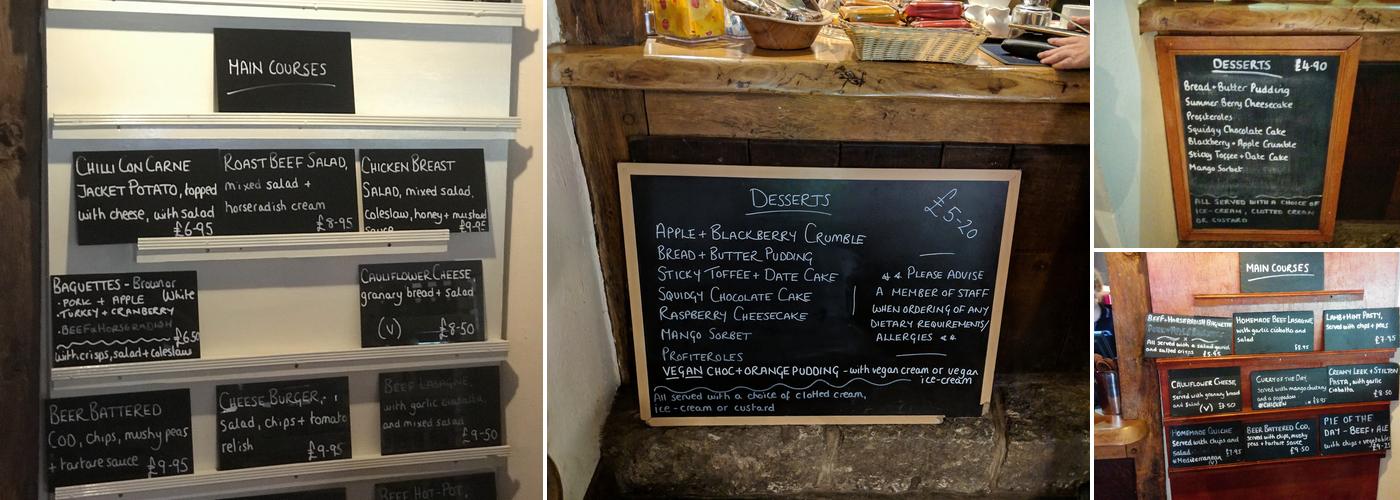 MAIN COURSES
CHILLI CON CARNE
JACKET POTATO, topped
with cheese, with salad
£6-95
ROAST BEEF SALAD,
mixed salad +
horseradish cream
£8-95
CHICKEN BREAST
SALAD, mixed salad,
coleslaw, honey + mustard
sauce £9-95
BAGUETTES - Brown or
White
· PORK + APPLE
· TURKEY + CRANBERRY
· BEEF + HORSERADISH
£6.50
with crisps, salad + coleslaw
CAULIFLOWER CHEESE,
granary bread + salad
(V) £8-50
BEER BATTERED
COD, chips, mushy peas
+ tartare sauce £9-95
CHEESE BURGER,
salad, chips + tomato
relish
£9-95
BEEF LASAGNE,
with garlic ciabatta,
and mixed salad
£9-50
BEEF HOT-POT,
DESSERTS
£5-20
APPLE + BLACKBERRY CRUMBLE
BREAD + BUTTER PUDDING
STICKY TOFFEE + DATE CAKE
SQUIDGY CHOCOLATE CAKE
RASPBERRY CHEESECAKE
MANGO SORBET
PROFITEROLES
VEGAN CHOC + ORANGE PUDDING - with vegan cream or vegan
ice-cream
All served with a choice of clotted cream,
ice-cream or custard
** PLEASE ADVISE
A MEMBER OF STAFF
WHEN ORDERING OF ANY
DIETARY REQUIREMENTS/
ALLERGIES **
DESSERTS £4-90
Bread + Butter Pudding
Summer Berry Cheesecake
Profiteroles
Squidgy Chocolate Cake
Blackberry + Apple Crumble
Sticky Toffee + Date Cake
Mango Sorbet
ALL SERVED WITH A CHOICE OF
ICE-CREAM, CLOTTED CREAM
OR CUSTARD
MAIN COURSES
BEEF + HORSERADISH BAGUETTE
All served with a salad garnish
and salted crisps £5.95
HOMEMADE BEEF LASAGNE
with garlic ciabatta and
salad
£8.95
LAMB + MINT PASTY,
served with chips + peas
£7.95
CAULIFLOWER CHEESE,
served with granary bread
and salad (V) £8.50
CURRY OF THE DAY
served with mango chutney
and a poppadom
*CHICKEN £8.95
CREAMY LEEK + STILTON
PASTA, with garlic
ciabatta
£8.50
HOMEMADE QUICHE
Served with chips and
salad £7.95
*Mediterranean
(V)
BEER BATTERED COD,
served with chips, mushy
peas + tartare sauce
£9.50
PIE OF THE
DAY - BEEF + ALE
with chips + vegetables
£9-25